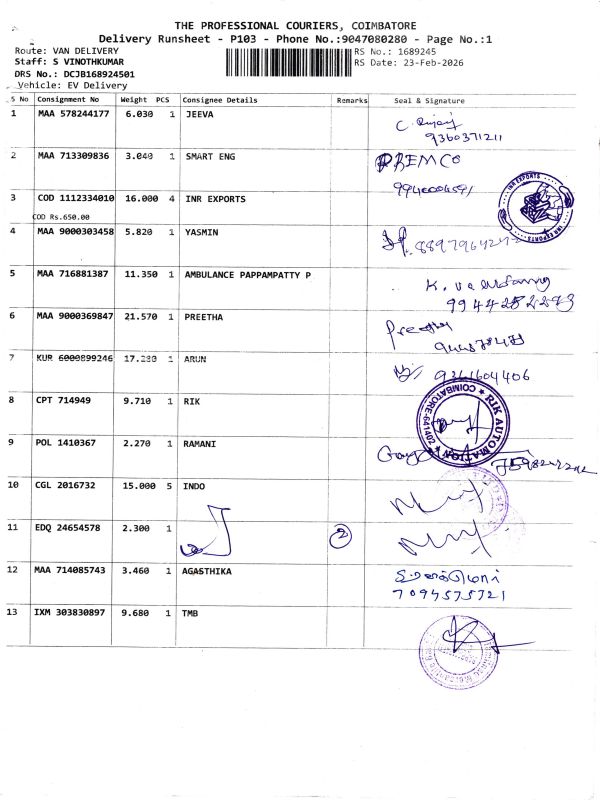 THE PROFESSIONAL COURIERS, COIMBATORE
Delivery Runsheet - P103 - Phone No.:9047080280 - Page No.:1
Route: VAN DELIVERY RS No.: 1689245
Staff: S VINOTHKUMAR RS Date: 23-Feb-2026
DRS No.: DCJB168924501
Vehicle: EV Delivery
S No Consignment No Weight PCS Consignee Details Remarks Seal & Signature
1 MAA 578244177 6.030 1 JEEVA
9360371211
2 MAA 713309836 3.040 1 SMART ENG PREMCO
3 COD 1112334010 16.000 4 INR EXPORTS INR EXPORTS
COD Rs.650.00
4 MAA 9000303458 5.820 1 YASMIN
5 MAA 716881387 11.350 1 AMBULANCE PAPPAMPATTY P
6 MAA 9000369847 21.570 1 PREETHA Preetha
7 KUR 6000899246 17.280 1 ARUN 9361604406
8 CPT 714949 9.710 1 RIK RIK AUTOMATION COIMBATORE
9 POL 1410367 2.270 1 RAMANI
10 CGL 2016732 15.000 5 INDO
11 EDQ 24654578 2.300 1 2
12 MAA 714085743 3.460 1 AGASTHIKA
7094575721
13 IXM 303830897 9.680 1 TMB